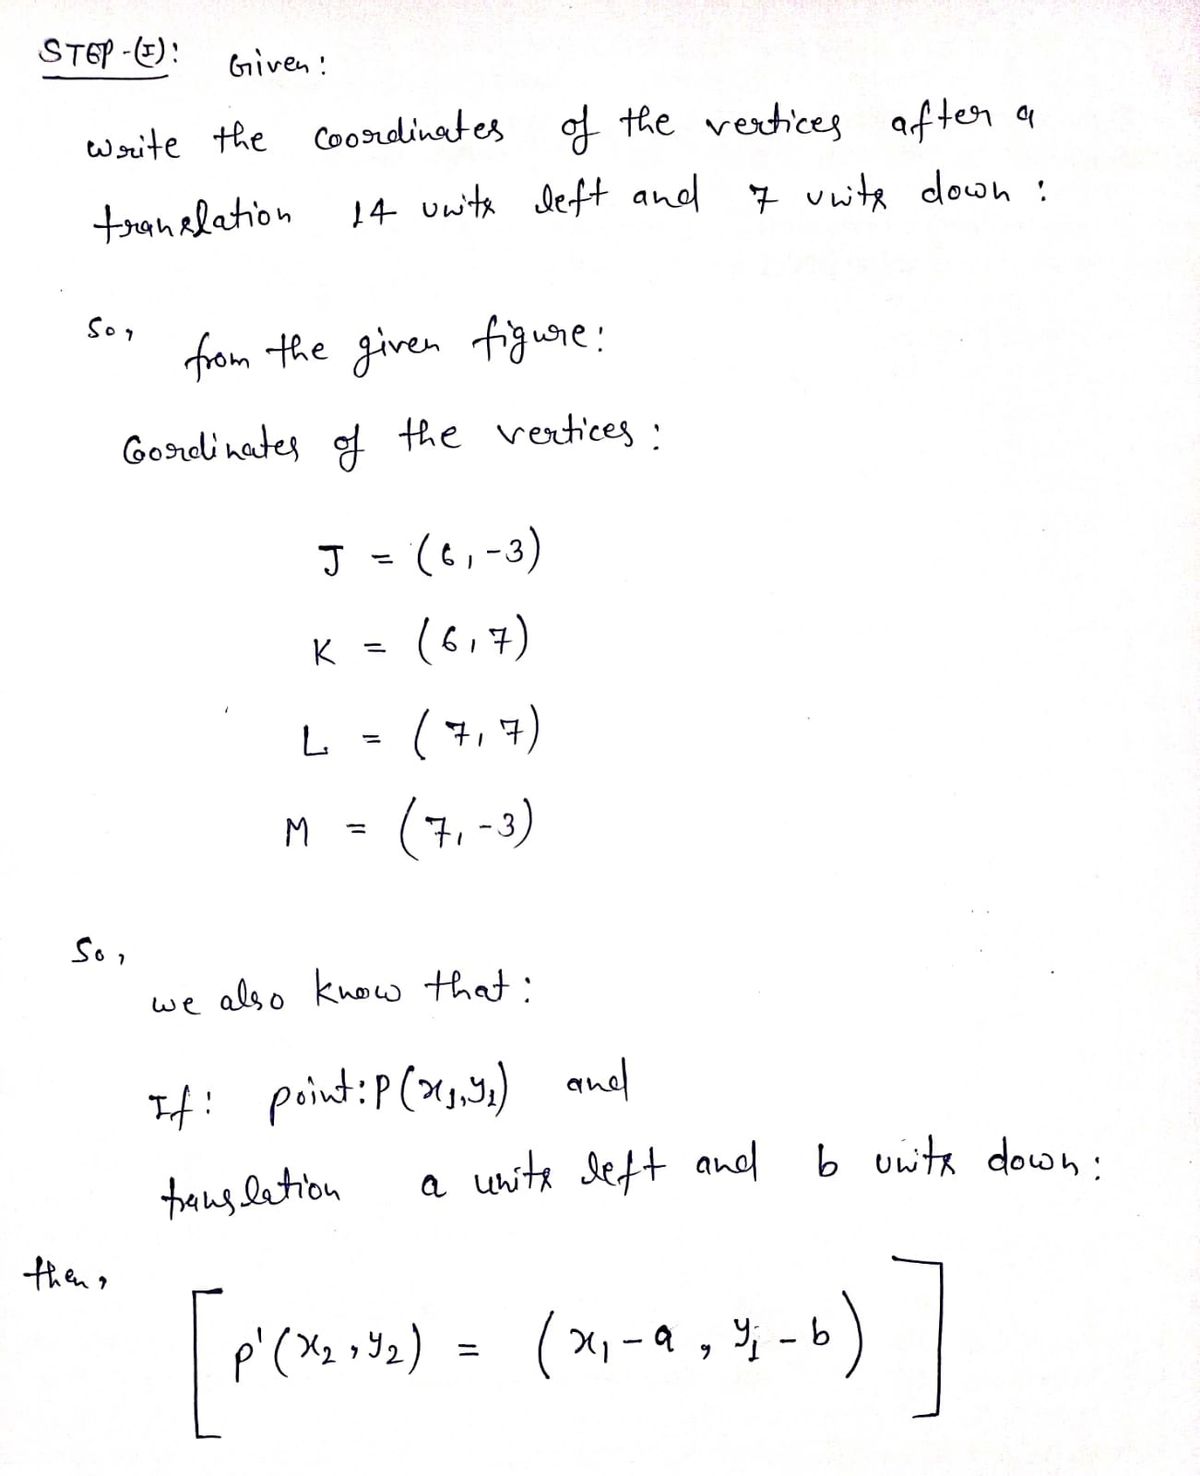 STEP-(I): Given:
write the coordinates of the vertices after a
translation 14 units left and 7 units down:
So, from the given figure:
Coordinates of the vertices:
J = (6, -3)
K = (6, 7)
L = (7, 7)
M = (7, -3)
So,
we also know that:
If: point: P(x₁, y₁) and
translation a units left and b units down:
then,
[P'(x₂, y₂) = (x₁ - a, y₁ - b)]